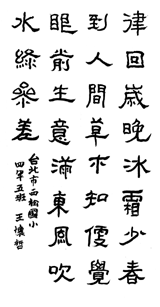 律回歲晚冰霜少春
到人間草木知便覺
眼前生意滿東風吹
水綠參差
台北市西松國小
四年五班 王懷哲